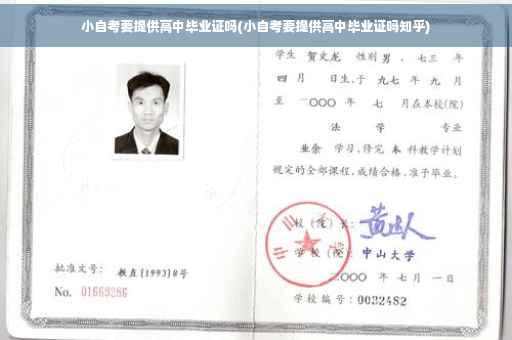 小自考要提供高中毕业证吗(小自考要提供高中毕业证吗知乎)
学生 贺文龙 性别 男 、七三 年
四 月 日生,于 九七 年 九 月
至 二〇〇〇 年 七 月在本校(院)
法 学 专业
业余 学习,修完 本 科教学计划
规定的全部课程,成绩合格,准予毕业。
校 (院) 长:
学 校 (院): 中山大学
二〇〇〇 年 七 月 一 日
学校编号: 0032482
批准文号: 教直[1993]8号
No. 01663286